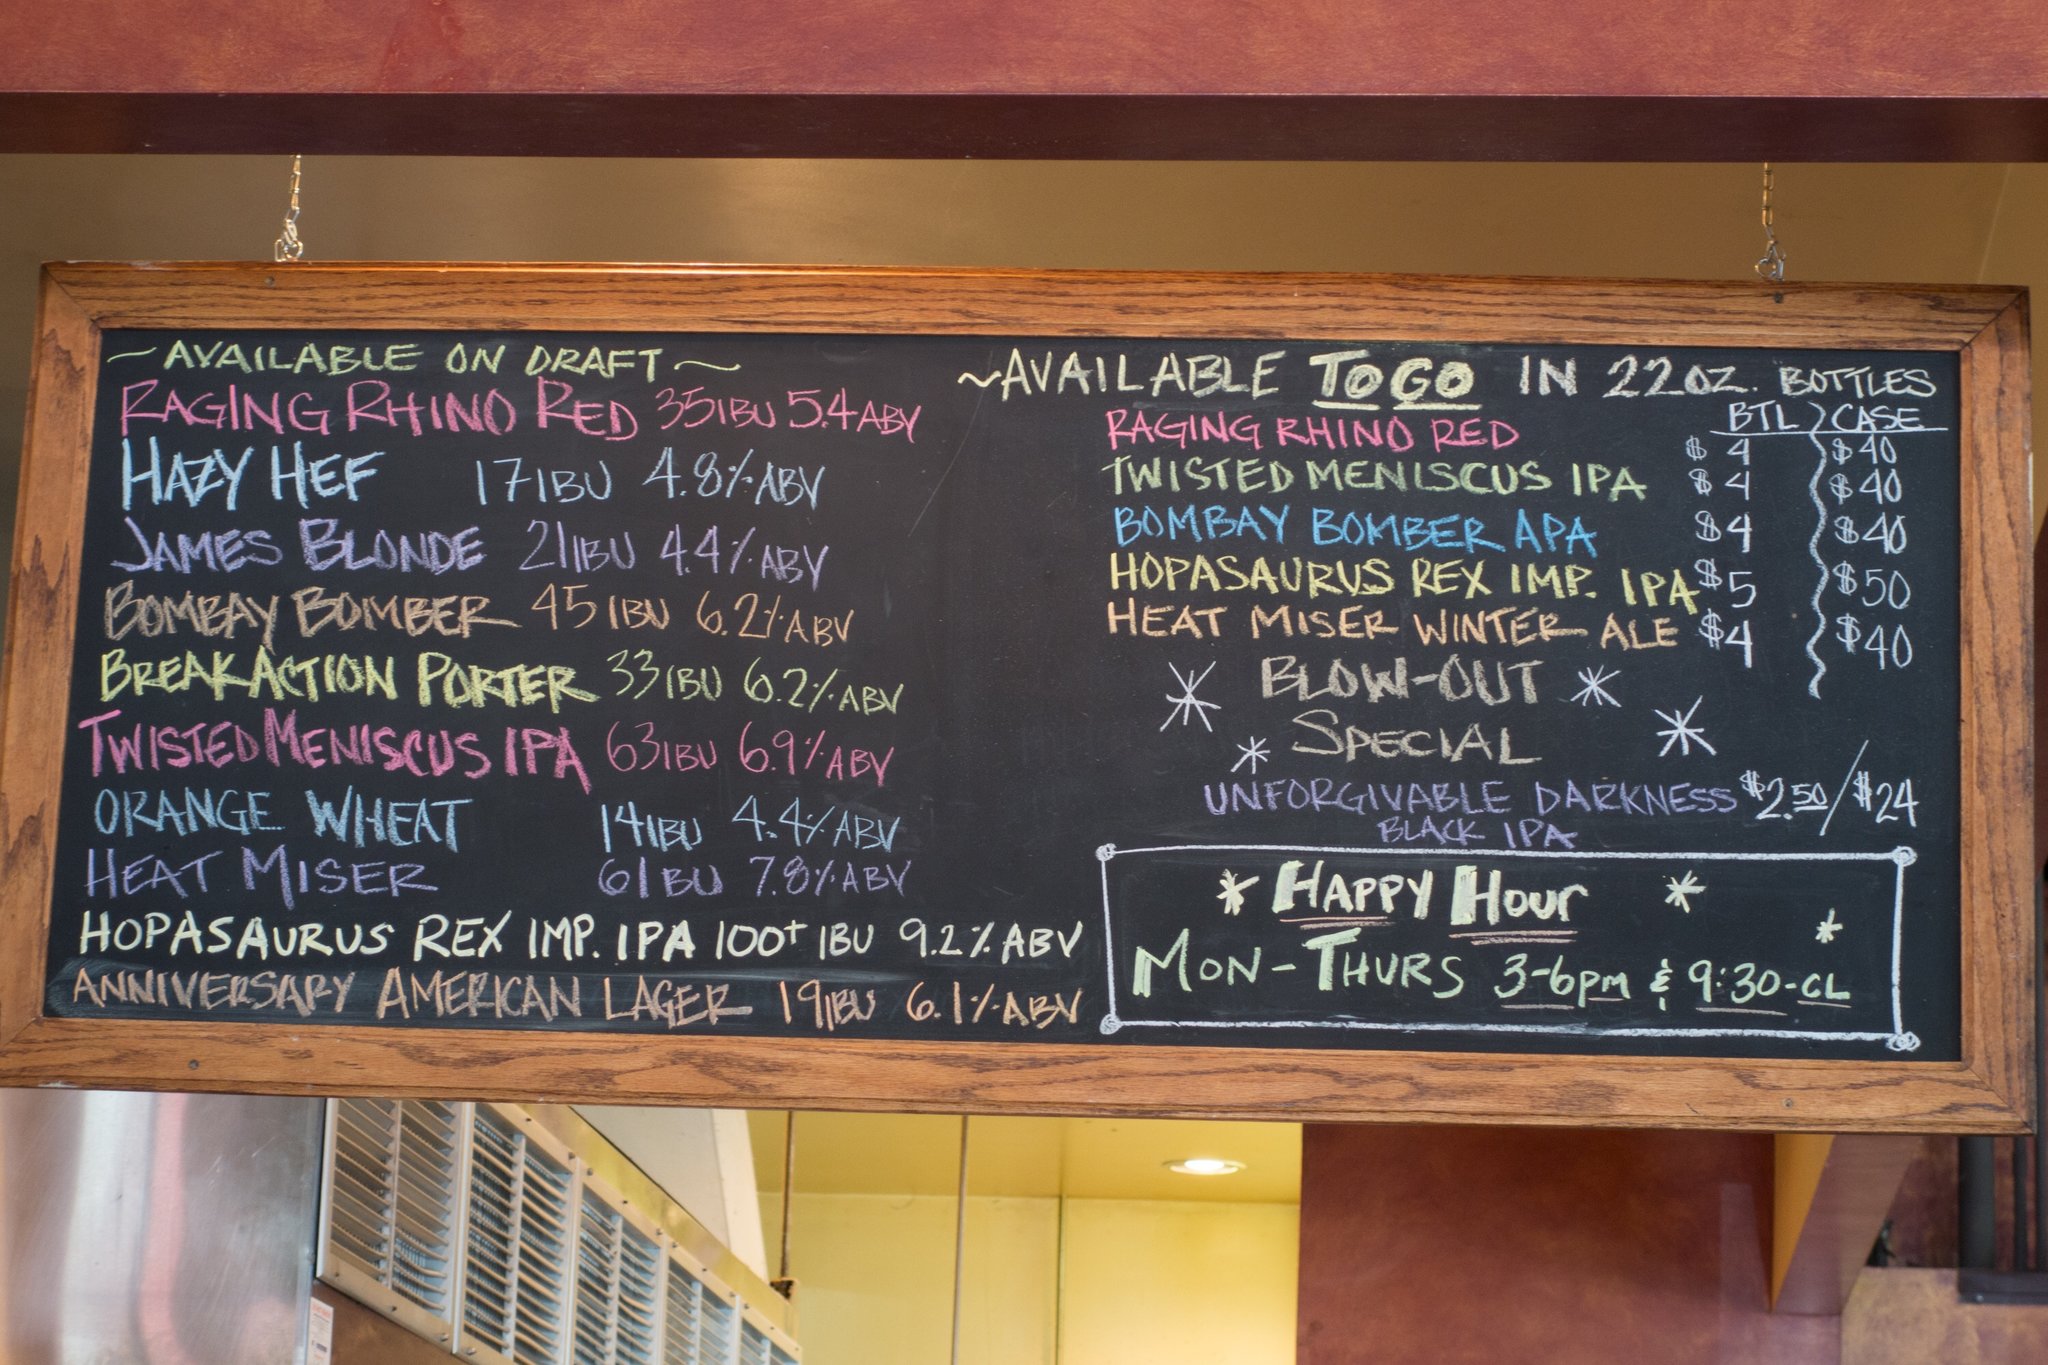 ~AVAILABLE ON DRAFT~
RAGING RHINO RED 35IBU 5.4 ABV
HAZY HEF 17IBU 4.8% ABV
JAMES BLONDE 21IBU 4.4% ABV
BOMBAY BOMBER 45 IBU 6.2% ABV
BREAK ACTION PORTER 33IBU 6.2% ABV
TWISTED MENISCUS IPA 63IBU 6.9% ABV
ORANGE WHEAT 14IBU 4.4% ABV
HEAT MISER 61BU 7.8% ABV
HOPASAURUS REX IMP. IPA 100+ IBU 9.2% ABV
ANNIVERSARY AMERICAN LAGER 19IBU 6.1% ABV
~AVAILABLE TO GO IN 22OZ. BOTTLES
BTL CASE
RAGING RHINO RED $4 $40
TWISTED MENISCUS IPA $4 $40
BOMBAY BOMBER APA $4 $40
HOPASAURUS REX IMP. IPA $5 $50
HEAT MISER WINTER ALE $4 $40
BLOW-OUT
SPECIAL
UNFORGIVABLE DARKNESS $2.50/$24
BLACK IPA
* HAPPY HOUR *
MON-THURS 3-6pm & 9:30-CL